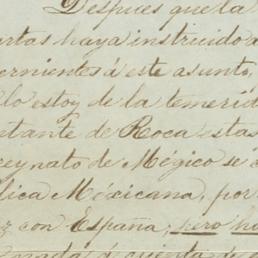 Despues que la
artas haya instruido a
ernientes á este asunto,
lo estoy de la temerid
tante de Roca estas
reynato de Mégico se
lica Méxicana, por
z con España, pero ha